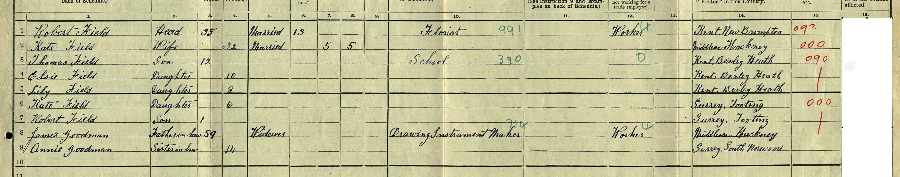 1 Robert Field Head 35 Married 13 Florist 991 Worker Kent New Brompton 09
2 Kate Field Wife 32 Married 5 5 Middlesex Hackney 000
3 Thomas Field Son 12 School 390 0 Kent, Bexley Heath 090
4 Elsie Field Daughter 10 Kent, Bexley Heath
5 Lily Field Daughter 8 Kent. Bexley Heath
6 Kate Field Daughter 6 Surrey, Tooting 000
7 Robert Field Son 1 Surrey, Tooting
8 James Goodman Father in law 59 Widower Drawing Instrument Maker Worker Middlesex Hackney
9 Annie Goodman Sister in law 14 Surrey, South Norwood
10
11